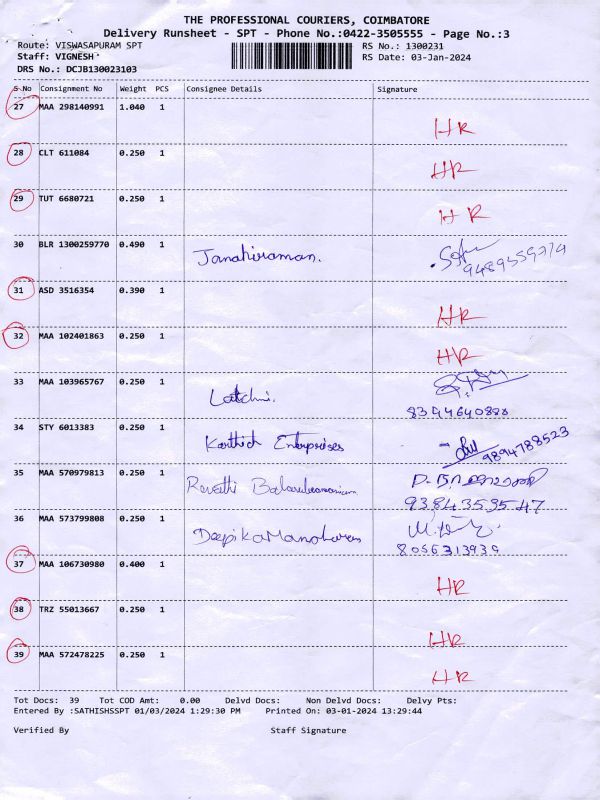 THE PROFESSIONAL COURIERS, COIMBATORE
Delivery Runsheet - SPT - Phone No.:0422-3505555 - Page No.:3
Route: VISWASAPURAM SPT RS No.: 1300231
Staff: VIGNESH RS Date: 03-Jan-2024
DRS No.: DCJB130023103
S No Consignment No Weight PCS Consignee Details Signature
27 MAA 298140991 1.040 1 HR
28 CLT 611084 0.250 1 HR
29 TUT 6680721 0.250 1 HR
30 BLR 1300259770 0.490 1 Janakiraman.
31 ASD 3516354 0.390 1 HR
32 MAA 102401863 0.250 1 HR
33 MAA 103965767 0.250 1 Latchmi.
8344640888
34 STY 6013383 0.250 1 Karthick Enterprises 9894788523
35 MAA 570979813 0.250 1 Revathi Balasubramaniam
9384353547
36 MAA 573799808 0.250 1 Deepika Manoharan
8056313939
37 MAA 106730980 0.400 1 HR
38 TRZ 55013667 0.250 1 HR
39 MAA 572478225 0.250 1 HR
Tot Docs: 39 Tot COD Amt: 0.00 Delvd Docs: Non Delvd Docs: Delvy Pts:
Entered By :SATHISHSSPT 01/03/2024 1:29:30 PM Printed On: 03-01-2024 13:29:44
Verified By Staff Signature